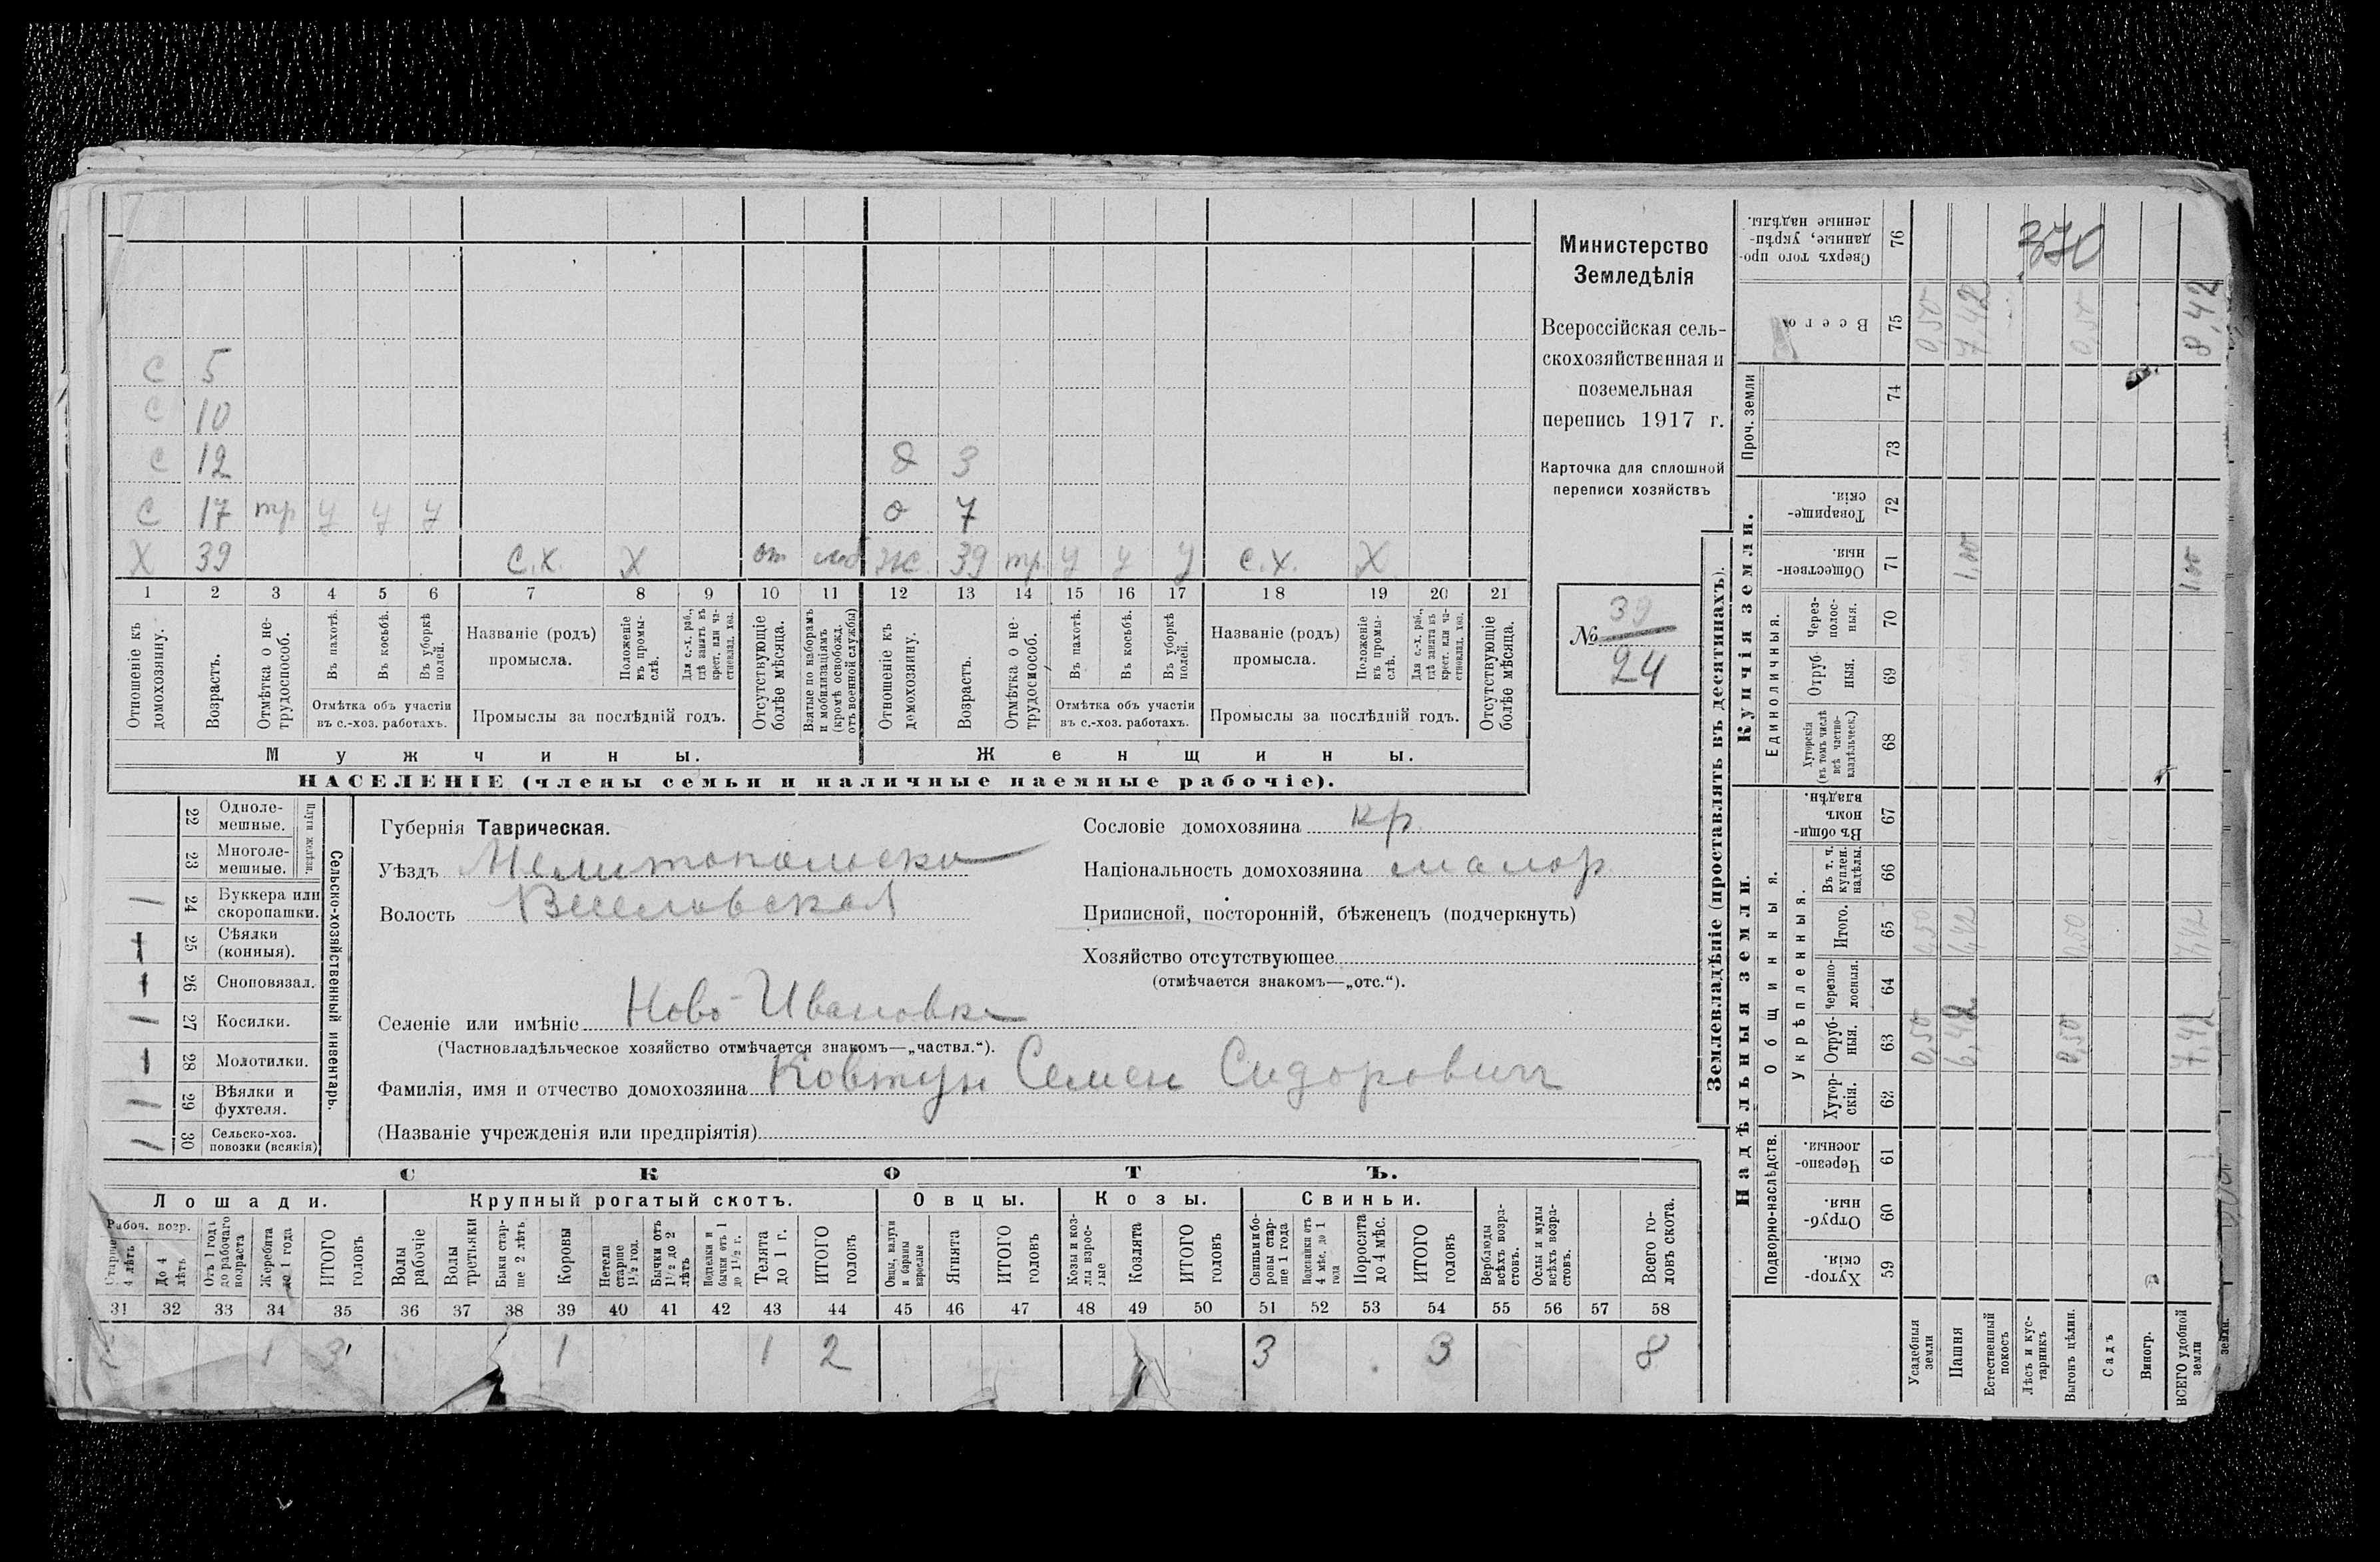 Министерство
Земледѣлія
Всероссійская сель-
скохозяйственная и
поземельная
перепись 1917 г.
Карточка для сплошной
переписи хозяйствъ
№ 39
24
с 5
с 10
с 12 д 3
с 17 тр у у у д 7
х 39 с.х. х от моб ж 39 тр. у у у с.х. х
1 2 3 4 5 6 7 8 9 10 11 12 13 14 15 16 17 18 19 20 21
Отношеніе къ домохозяину.
Возрастъ.
Отмѣтка о не-трудоспособ.
Въ пахотѣ.
Въ косьбѣ.
Въ уборкѣ полей.
Отмѣтка объ участіи въ с.-хоз. работахъ.
Названіе (родъ) промысла.
Положеніе въ промы-слѣ.
Для с.-х. раб., гдѣ занятъ въ крест. или ча-стновлад. хоз.
Промыслы за послѣдній годъ.
Отсутствующіе болѣе мѣсяца.
Взятые по наборамъ и мобилизаціямъ (кромѣ освобожд. отъ военной службы)
Отношеніе къ домохозяину.
Возрастъ.
Отмѣтка о не-трудоспособ.
Въ пахотѣ.
Въ косьбѣ.
Въ уборкѣ полей.
Отмѣтка объ участіи въ с.-хоз. работахъ.
Названіе (родъ) промысла.
Положеніе въ промы-слѣ.
Для с.-х. раб., гдѣ занята въ крест. или ча-стновлад. хоз.
Промыслы за послѣдній годъ.
Отсутствующіе болѣе мѣсяца.
Мужчины. Женщины.
НАСЕЛЕНІЕ (члены семьи и наличные наемные рабочіе).
Сельско-хозяйственный инвентарь.
Плуги желѣзн.
22 Одноле-мешные.
23 Многоле-мешные.
24 Буккера или скоропашки. 1
25 Сѣялки (конныя).
26 Сноповязал.
27 Косилки. 1
28 Молотилки. 1
29 Вѣялки и фухтеля. 1
30 Сельско-хоз. повозки (всякія) 1
Губернія Таврическая.
Уѣздъ Мелитопольски
Волость Веселовская
Сословіе домохозяина кр.
Національность домохозяина малор.
Приписной, посторонній, бѣженецъ (подчеркнуть)
Хозяйство отсутствующее
(отмѣчается знакомъ—„отс.“).
Селеніе или имѣніе Ново-Ивановка
(Частновладѣльческое хозяйство отмѣчается знакомъ—„частвл.“).
Фамилія, имя и отчество домохозяина Ковтун Семен Сидорович
(Названіе учрежденія или предпріятія)
СКОТЪ.
Лошади. Крупный рогатый скотъ. Овцы. Козы. Свиньи.
Рабоч. возр.
Старше 4 лѣтъ
До 4 лѣтъ
Отъ 1 года до рабочаго возраста
Жеребята до 1 года
ИТОГО головъ
Волы рабочіе
Волы третьяки
Быки стар-ше 2 лѣтъ
Коровы
Нетели старше 1½ год.
Бычки отъ 1½ до 2 лѣтъ
Подтелки и бычки отъ 1 до 1½ г.
Телята до 1 г.
ИТОГО головъ
Овцы, валухи и бараны взрослые
Ягнята
ИТОГО головъ
Козы и коз-лы взрос-лые
Козлята
ИТОГО головъ
Свиньи и бо-ровы стар-ше 1 года
Подсвинки отъ 4 мѣс. до 1 года
Поросята до 4 мѣс.
ИТОГО головъ
Верблюды всѣхъ возра-стовъ.
Ослы и мулы всѣхъ возра-стовъ.
Всего го-ловъ скота.
31 32 33 34 35 36 37 38 39 40 41 42 43 44 45 46 47 48 49 50 51 52 53 54 55 56 57 58
2 1 3 1 1 2 3 3 8
Землевладѣніе (проставлять въ десятинахъ).
Надѣльныя земли.
Купчія земли.
Проч. земли
Подворно-наслѣдств.
Общинныя.
Укрѣпленныя.
Единоличныя.
Хутор-скія. 59
Отруб-ныя. 60
Черезпо-лосныя. 61
Хутор-скія. 62
Отруб-ныя. 63
Черезпо-лосныя. 64
Итого. 65
Въ т. ч. куплен. надѣлы. 66
Въ общи-номъ владѣн. 67
Хуторскія (въ томъ числѣ всѣ частно-владѣльческ.) 68
Отруб-ныя. 69
Через-полос-ныя. 70
Обществен-ныя. 71
Товарище-скія. 72
73
74
Всего 75
Сверхъ того про-данные, укрѣп-ленные надѣлы. 76
370
Усадебныя земли 0,50 0,50 0,50
Пашня 6,42 6,42 1,00 7,42
Естественный покосъ
Лѣсъ и кус-тарникъ
Выгонъ цѣлин. 0,50 0,50 0,50
Садъ
Виногр.
ВСЕГО удобной земли 7,42 7,42 1,00 8,42